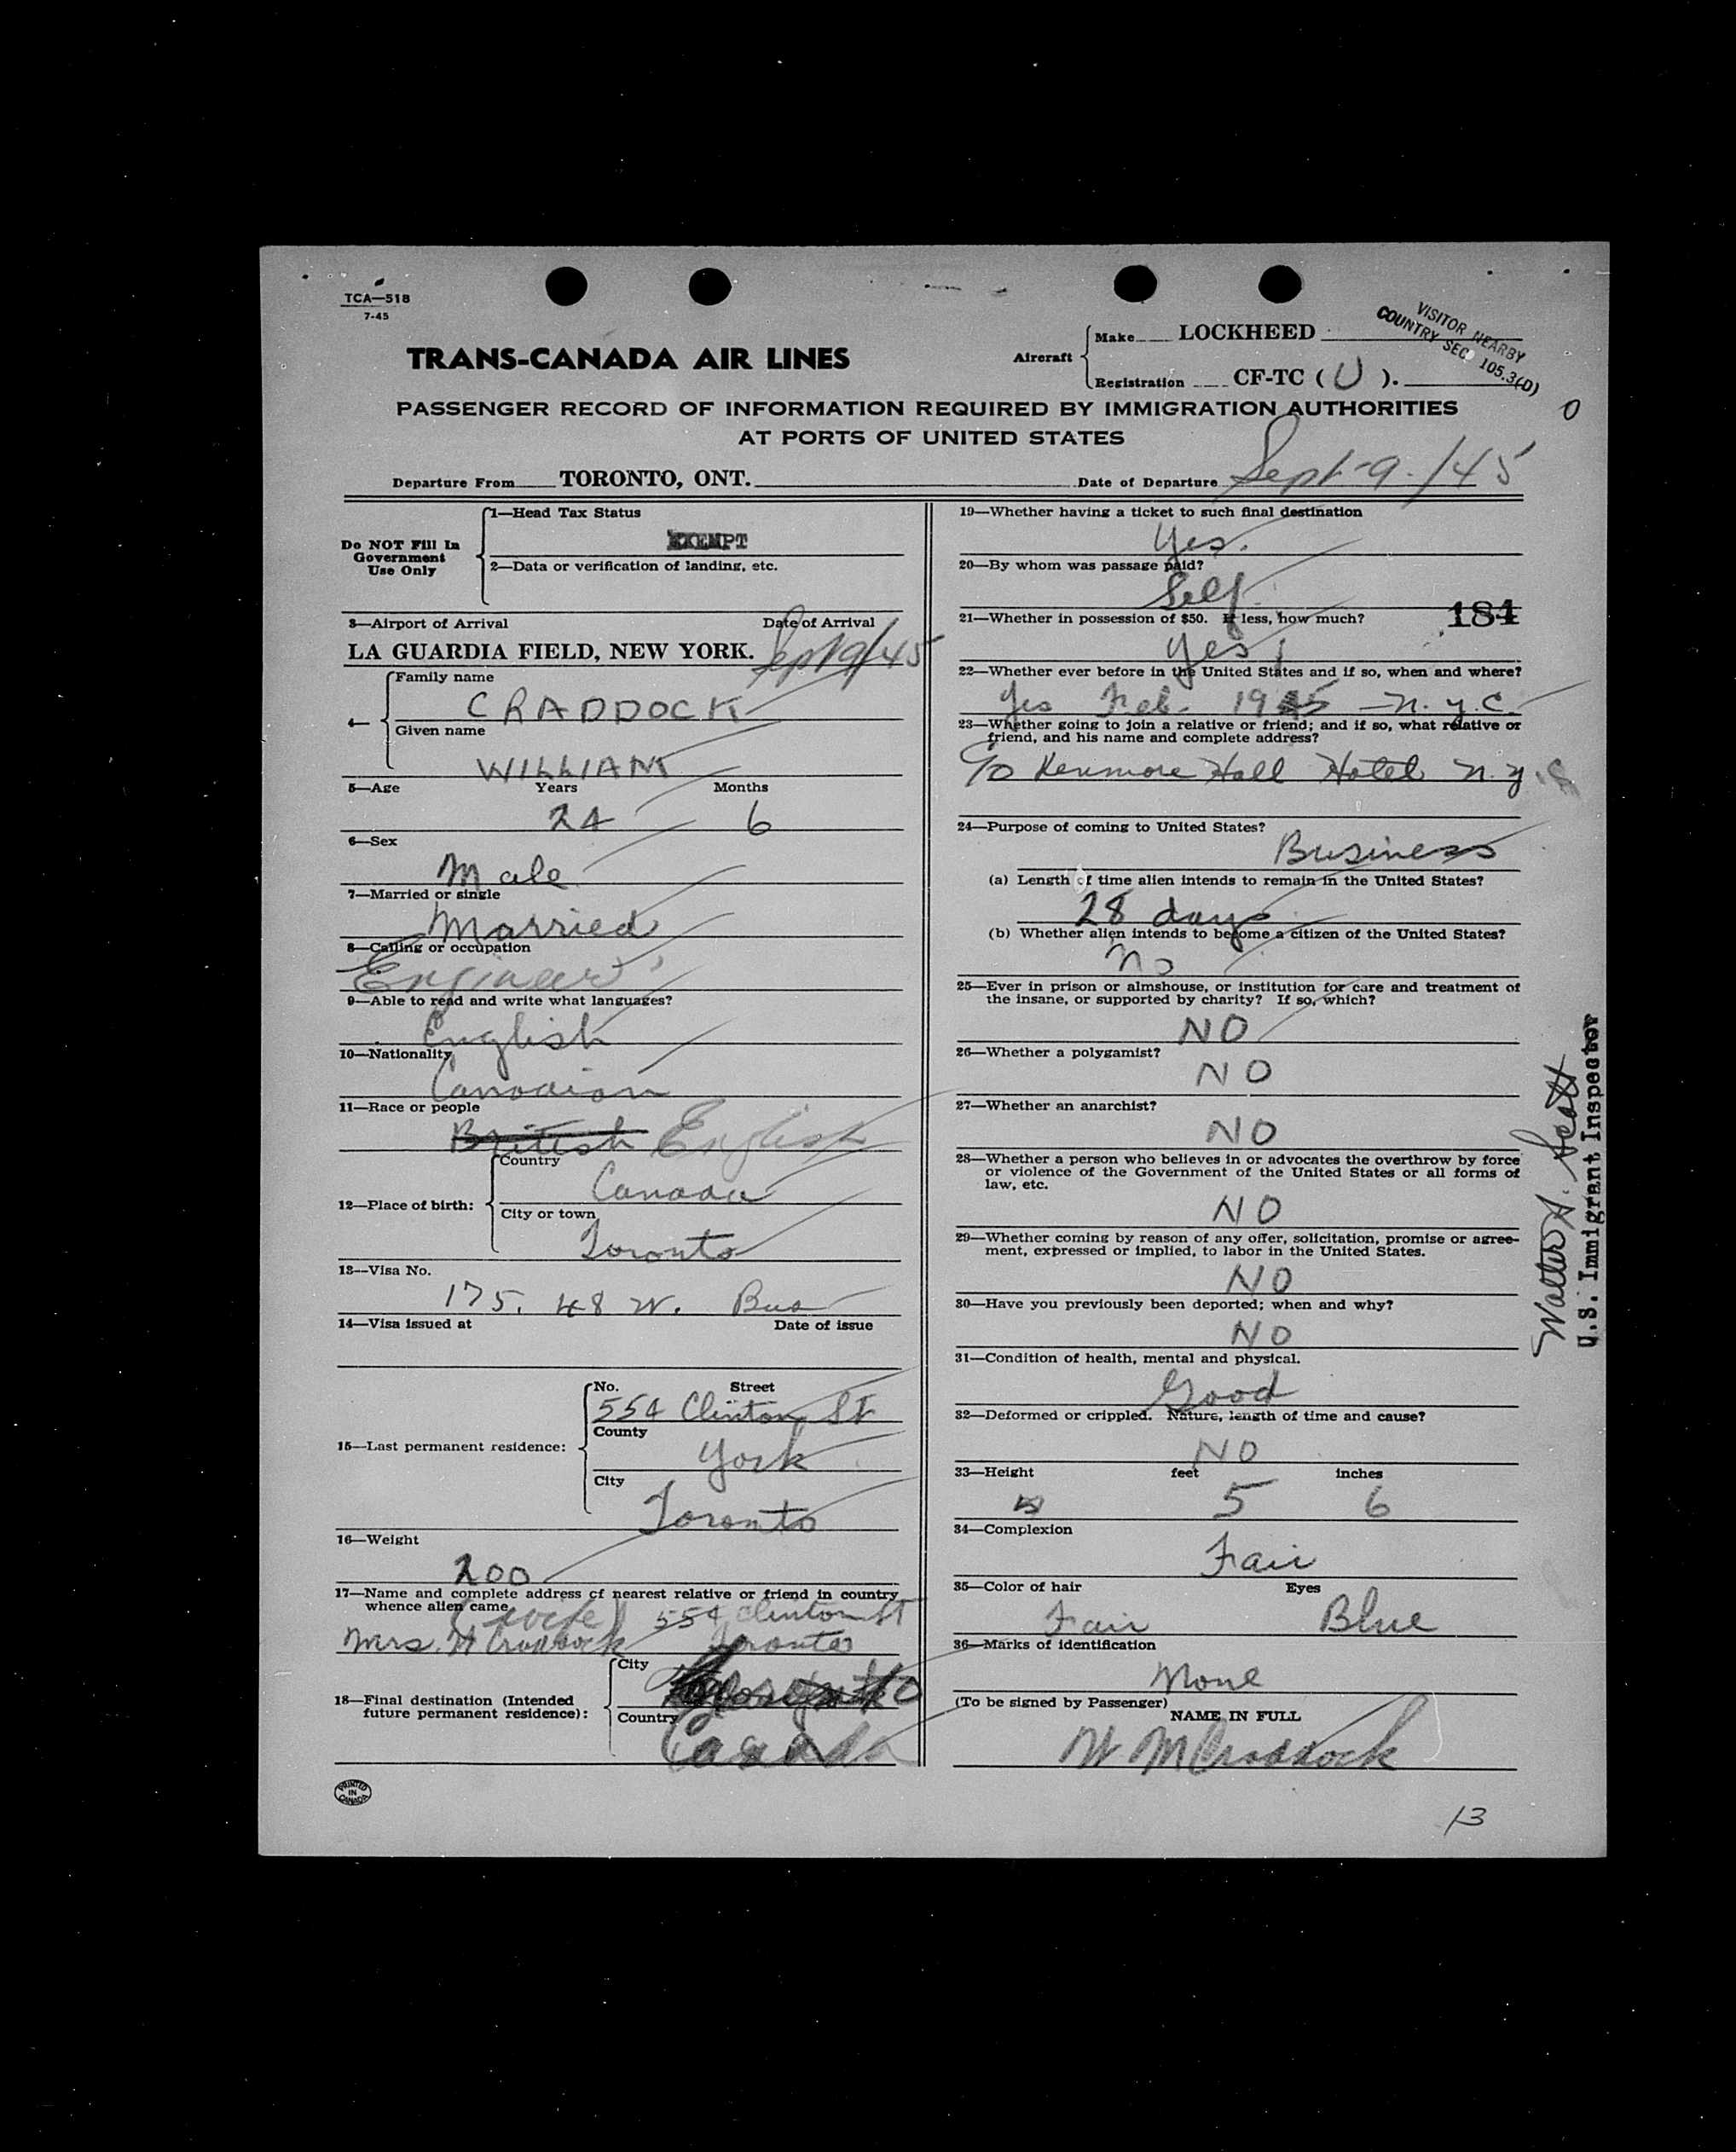 TCA—518
7-45
TRANS-CANADA AIR LINES
Aircraft
Make LOCKHEED
Registration CF-TC ( U ).
VISITOR NEARBY
COUNTRY SEC 105.3(D)
0
PASSENGER RECORD OF INFORMATION REQUIRED BY IMMIGRATION AUTHORITIES
AT PORTS OF UNITED STATES
Departure From TORONTO, ONT. Date of Departure Sept-9-/45
Do NOT Fill In
Government
Use Only
1—Head Tax Status
EXEMPT
2—Data or verification of landing, etc.
3—Airport of Arrival Date of Arrival
LA GUARDIA FIELD, NEW YORK. Sept 9/45
4—
Family name
CRADDOCK
Given name
WILLIAM
5—Age Years Months
24 6
6—Sex
Male
7—Married or single
Married
8—Calling or occupation
Engineer
9—Able to read and write what languages?
English
10—Nationality
Canadian
11—Race or people
British English
12—Place of birth:
Country
Canada
City or town
Toronto
13—Visa No.
175. 48 W. Bus
14—Visa issued at Date of issue
15—Last permanent residence:
No. Street
554 Clinton St
County
York
City
Toronto
16—Weight
200
17—Name and complete address of nearest relative or friend in country
whence alien came
(wife) 554 Clinton St
Mrs. W Craddock Toronto
18—Final destination (Intended
future permanent residence):
City
Toronto
Country
Canada
PRINTED
IN
CANADA
19—Whether having a ticket to such final destination
Yes.
20—By whom was passage paid?
Self
21—Whether in possession of $50. If less, how much?
184
Yes
22—Whether ever before in the United States and if so, when and where?
Yes Feb. 1945 — N.Y.C.
23—Whether going to join a relative or friend; and if so, what relative or
friend, and his name and complete address?
C/O Kenmore Hall Hotel N.Y.C
24—Purpose of coming to United States?
Business
(a) Length of time alien intends to remain in the United States?
28 days
(b) Whether alien intends to become a citizen of the United States?
No
25—Ever in prison or almshouse, or institution for care and treatment of
the insane, or supported by charity? If so, which?
NO
26—Whether a polygamist?
NO
27—Whether an anarchist?
NO
28—Whether a person who believes in or advocates the overthrow by force
or violence of the Government of the United States or all forms of
law, etc.
NO
29—Whether coming by reason of any offer, solicitation, promise or agree-
ment, expressed or implied, to labor in the United States.
NO
30—Have you previously been deported; when and why?
NO
31—Condition of health, mental and physical.
Good
32—Deformed or crippled. Nature, length of time and cause?
NO
33—Height feet inches
5 6
34—Complexion
Fair
35—Color of hair Eyes
Fair Blue
36—Marks of identification
None
(To be signed by Passenger)
NAME IN FULL
W M Craddock
13
Walter A. Scott
U.S. Immigrant Inspector